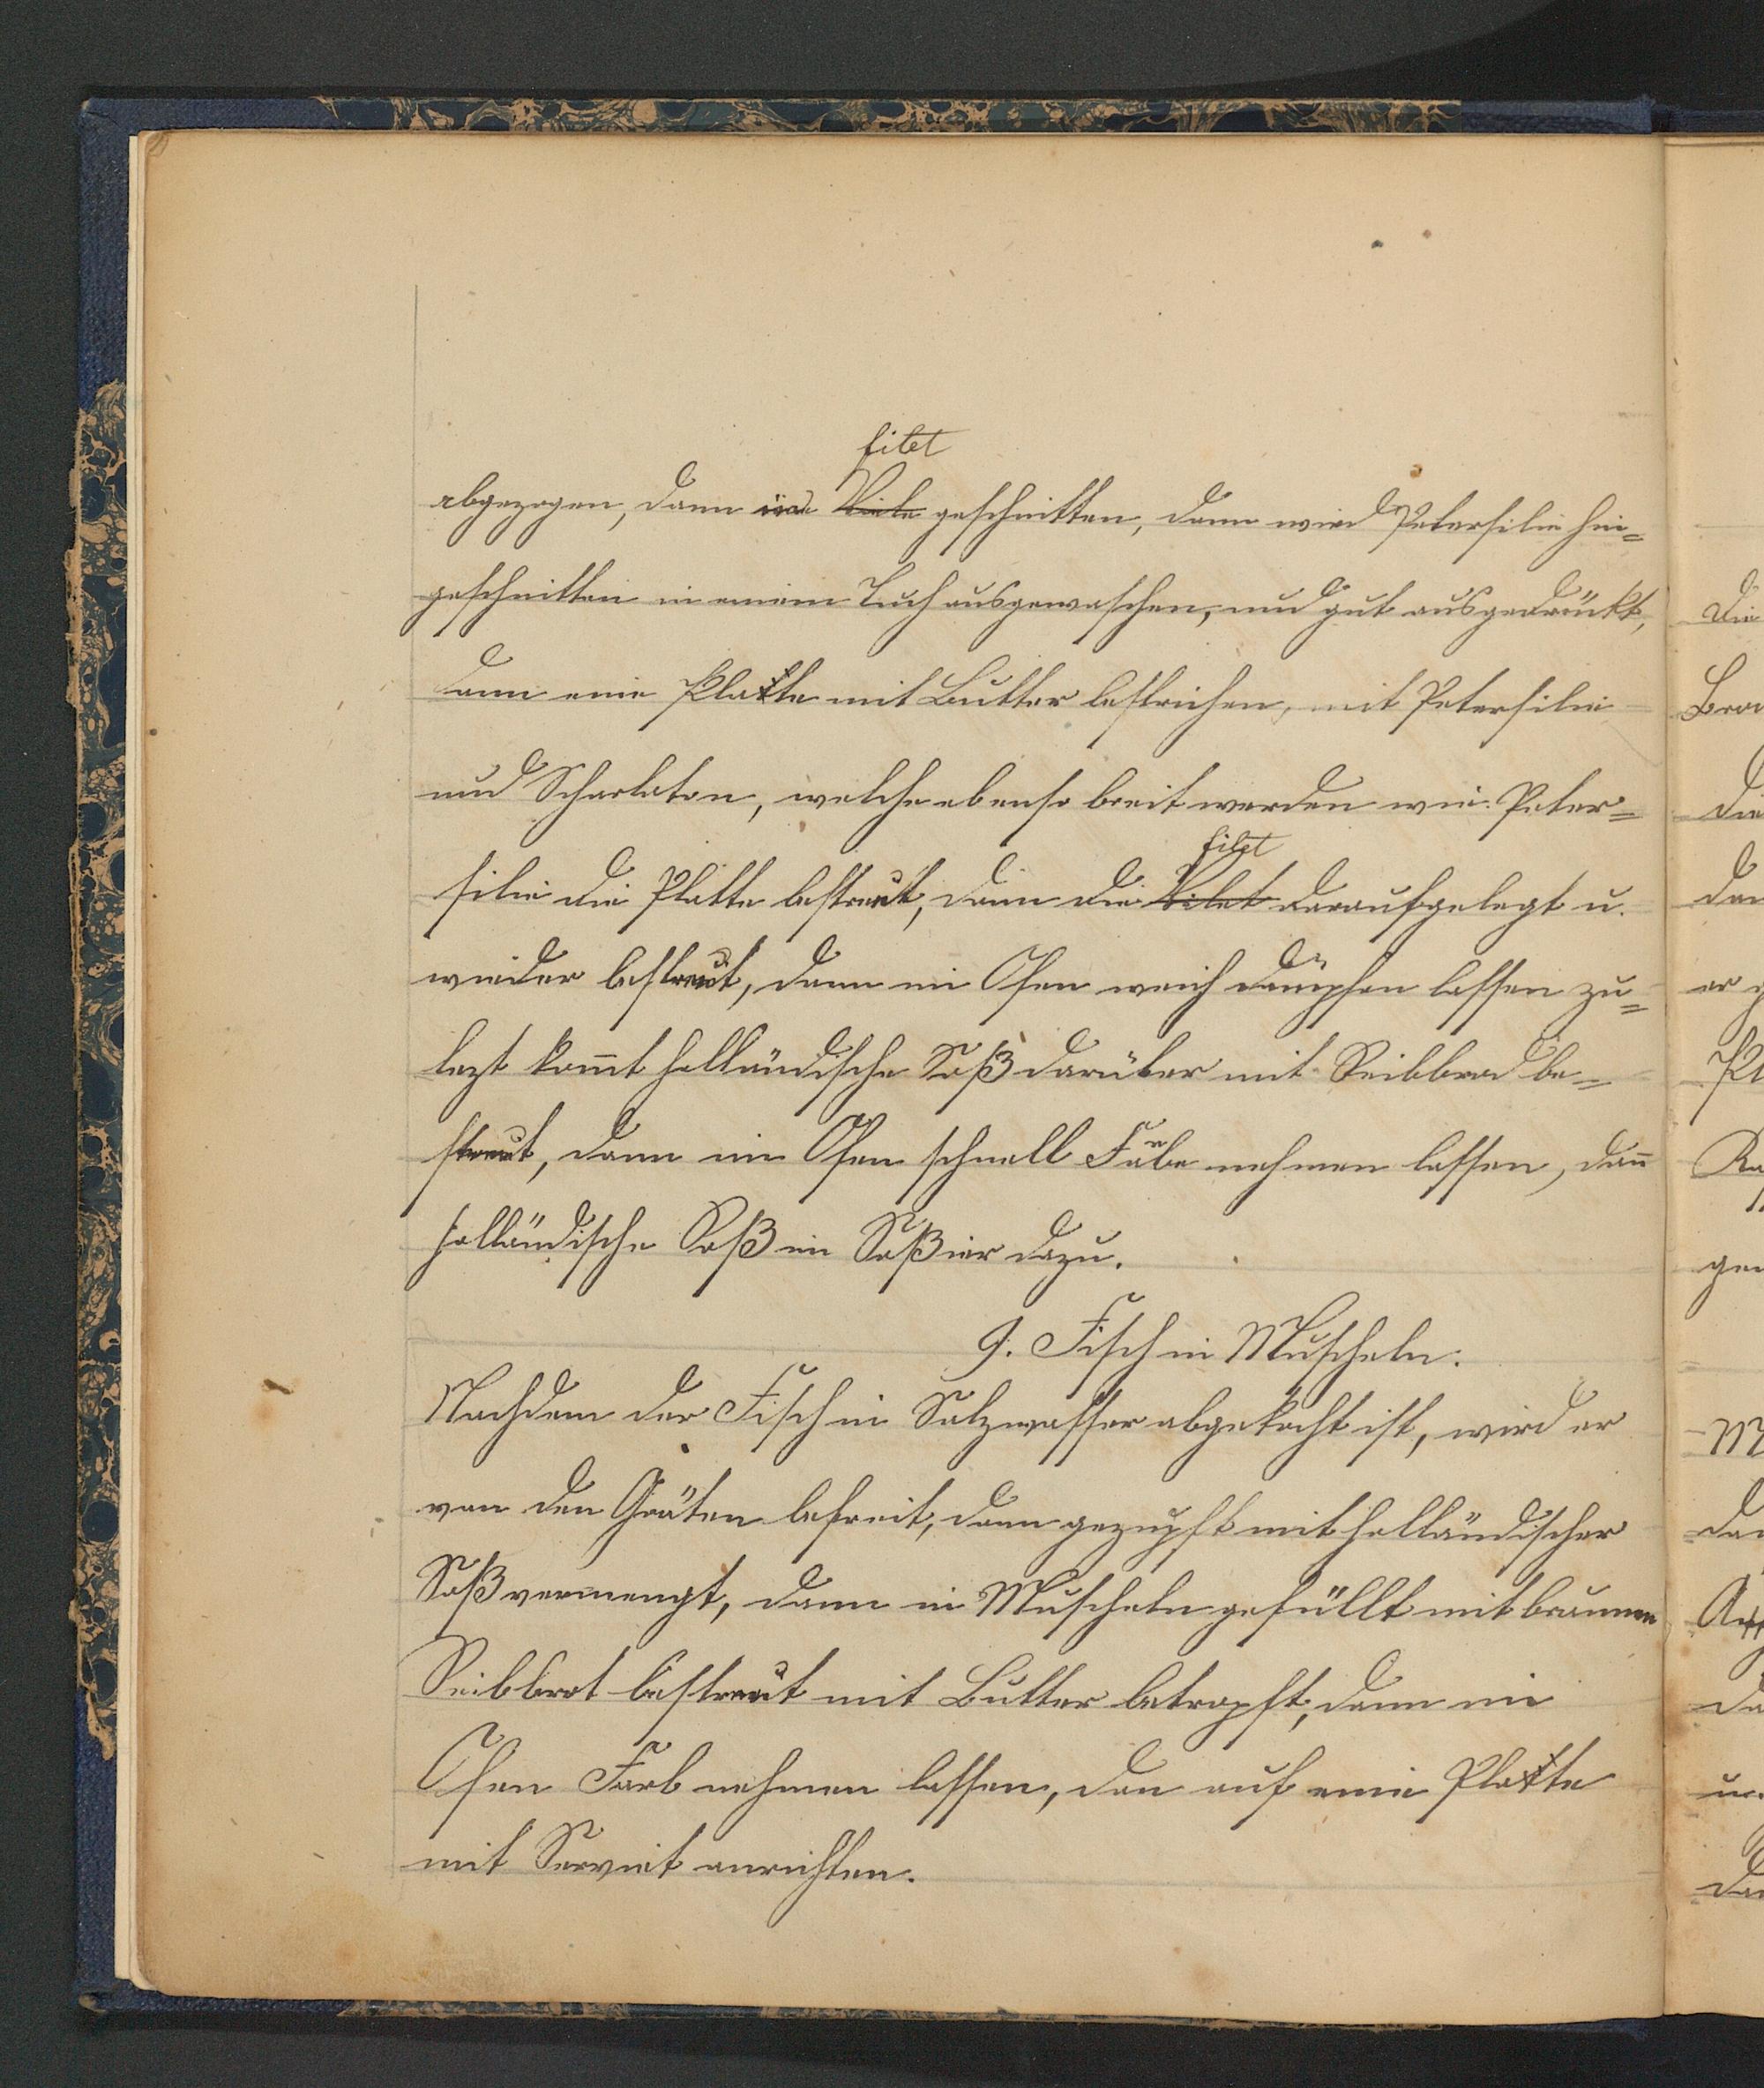 filet
abgezogen, dann in Viele geschnitten, dann wird Petersilie hin=
geschnitten in einem Tuch ausgewaschen, und gut ausgedrückt,
dann eine Platte mit Butter bestrichen, mit Petersilie
und Scharloten, welche ebenso breit werden wie Peter=
filet
silie die Platte bestreut, dann die Vilet daraufgelegt u.
wieder bestreut, dann im Ofen weich dämpfen lassen zu=
lezt kom̅t holländische Soß darüber mit Reibbrod be=
streut, dann im Ofen schnell Farbe nehmen lassen, dan̅
holländische Soß im Soßier dazu.
9. Fisch in Muscheln.
Nachdem der Fisch in Salzwasser abgekocht ist, wird er
von den Gräten befreit, dann gezupft mit holländischer
Soß vermengt, dann in Muscheln gefüllt mit braunen
Reibbrot bestreut mit Butter betropft, dann im
Ofen Farb nehmen lassen, dan auf eine Platte
mit Serviet anrichten.
Die
die
er